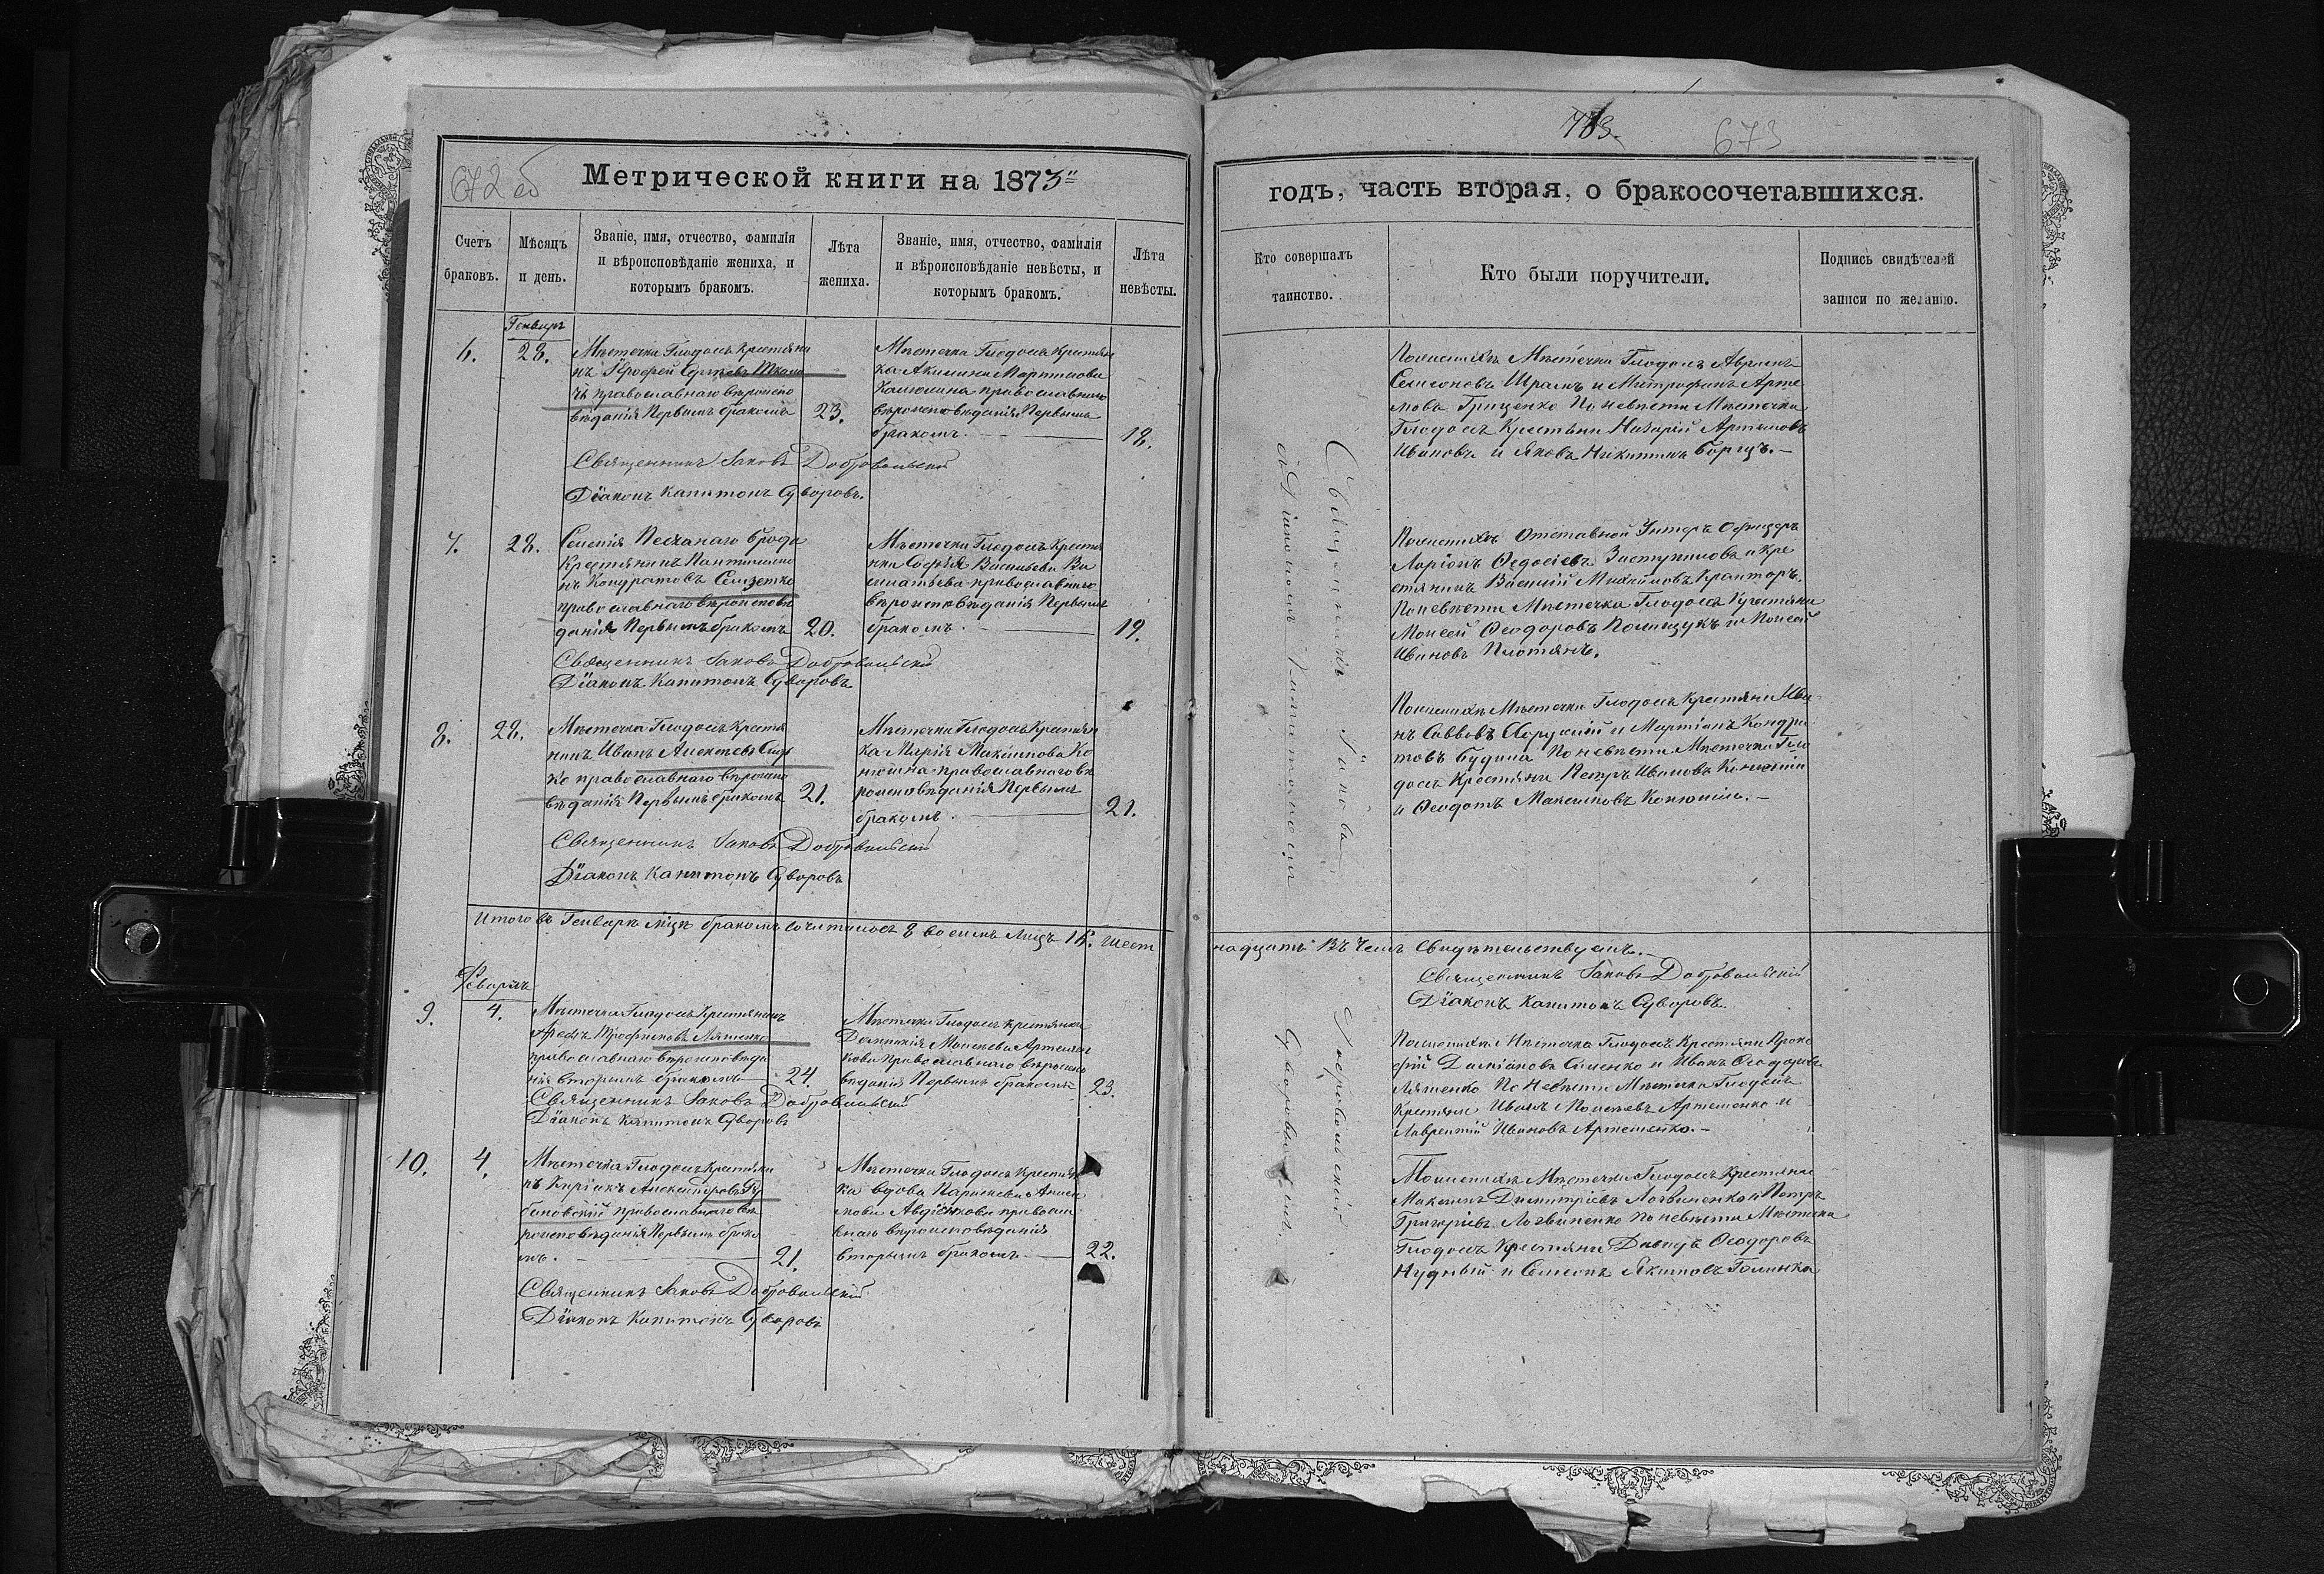 672 об
Метрической книги на 1873
Счетъ браковъ.
Мѣсяцъ и день.
Званіе, имя, отчество, фамилія
и вѣроисповѣданіе жениха, и
которымъ бракомъ.
Лѣта жениха.
Званіе, имя, отчество, фамилія
и вѣроисповѣданіе невѣсты, и
которымъ бракомъ.
Лѣта невѣсты.
Генварь
6.
28.
Мѣстечка Глодосъ Крестьяни
нъ Ерофей Сергѣевъ Ткаче
православнаго вѣроиспо
вѣданія Первымъ бракомъ
23.
Мѣстечка Глодосъ Крестьян
ка Акилина Мартинова
православнаго
вѣроисповѣданія Первымъ
бракомъ.
18.
Священникъ Іаковъ Добровольскій
Діаконъ Капитонъ Суворовъ.
7.
28.
Селенія Песчанаго брода
Крестьянинъ Пантилимо
нъ Кондратовъ
православнаго вѣроисповѣ
данія Первымъ бракомъ
20.
Мѣстечка Глодосъ Крестья
нка Софія Васильева Ва
православнаго
вѣроисповѣданія Первымъ
бракомъ.
19.
Священникъ Іаковъ Добровольскій
Діаконъ Капитонъ Суворовъ
8.
28.
Мѣстечка Глодосъ Крестья
нинъ Иванъ Алексѣевъ
ко православнаго вѣроиспо
вѣданія Первымъ бракомъ
21.
Мѣстечка Глодосъ Крестьян
ка Марія Максимова Ко
нюшна православнаго вѣ
роисповѣданія Первымъ
бракомъ.
21.
Священникъ Іаковъ Добровольскій
Діаконъ Капитонъ Суворовъ
Итого въ Генварѣ мцѣ бракомъ сочиталось 8 восемь Лицъ 16. шест
Февраль
9.
4.
Мѣстечка Глодосъ Крестьянинъ
Трофимовъ Ляшенко
православнаго вѣроисповѣда
нія вторымъ бракомъ
24.
Мѣстечка Глодосъ Крестьянка
Домникія Моисѣева Артемен
кова православнаго вѣроиспо
вѣданія Первымъ бракомъ
23.
Священникъ Іаковъ Добровольскій
Діаконъ Капитонъ Суворовъ
10.
4.
Мѣстечка Глодосъ Крестьяни
нъ Киріакъ Александровъ Ру
бановскій православнаго вѣ
роисповѣданія Первымъ брако
мъ.
21.
Мѣстечка Глодосъ Крестьян
ка вдова Параскева
мова Авдіенкова православ
наго вѣроисповѣданія
вторымъ бракомъ
22.
Священникъ Іаковъ Добровольскій
Діаконъ Капитонъ Суворовъ
673
годъ, часть вторая, о бракосочетавшихся.
Кто совершалъ таинство.
Кто были поручители.
Подпись свидѣтелей записи по желанію.
Священникъ Іаковъ Добровольскій
съ Діакономъ Капитономъ Суворовымъ.
По женихѣ Мѣстечка Глодосъ Абрамъ
Семеоновъ Шрамъ и Митрофанъ Арте
мовъ Гриценко По невѣсти Мѣстечка
Глодосъ Крестьяни Назарій Артемовъ
Ивановъ и Яковъ Никитинъ борщъ.
По женихѣ Отставной Унтеръ Офицеръ
Ларіонъ Ѳедосіевъ Заступиловъ и Кре
стянинъ Василій Михайловъ Кранторъ.
По невѣсти Мѣстечка Глодосъ Крестьяни
Моисей Ѳеодоровъ Полищукъ и Моисей
Ивановъ
По женихѣ Мѣстечка Глодосъ Крестьяни Ива
нъ Саввовъ и Мартіанъ Кондра
товъ Будика По невѣсти Мѣстечка Гло
досъ Крестьяни Петръ Ивановъ
и Ѳеодотъ Максимовъ Конюшна.
надцать въ чемъ свидѣтельствуемъ.
Священникъ Іаковъ Добровольскій
Діаконъ Капитонъ Суворовъ.
По женихѣ Мѣстечка Глодосъ Крестьяни Проко
фій Даміановъ Семенко и Иванъ Ѳеодоровъ
Ляшенко По невѣсти Мѣстечка Глодосъ
Крестьяни Иванъ Моисѣевъ Артеменко и
Лаврентій Ивановъ Артеменко.
По женихѣ Мѣстечка Глодосъ Крестьяни
Максимъ Димитріевъ Логвиненко и Петръ
Григоріевъ Логвиненко По невѣсти Мѣстечка
Глодосъ Крестьяни Давидъ Ѳеодоровъ
Нудный и Семеонъ Якимовъ Голинка